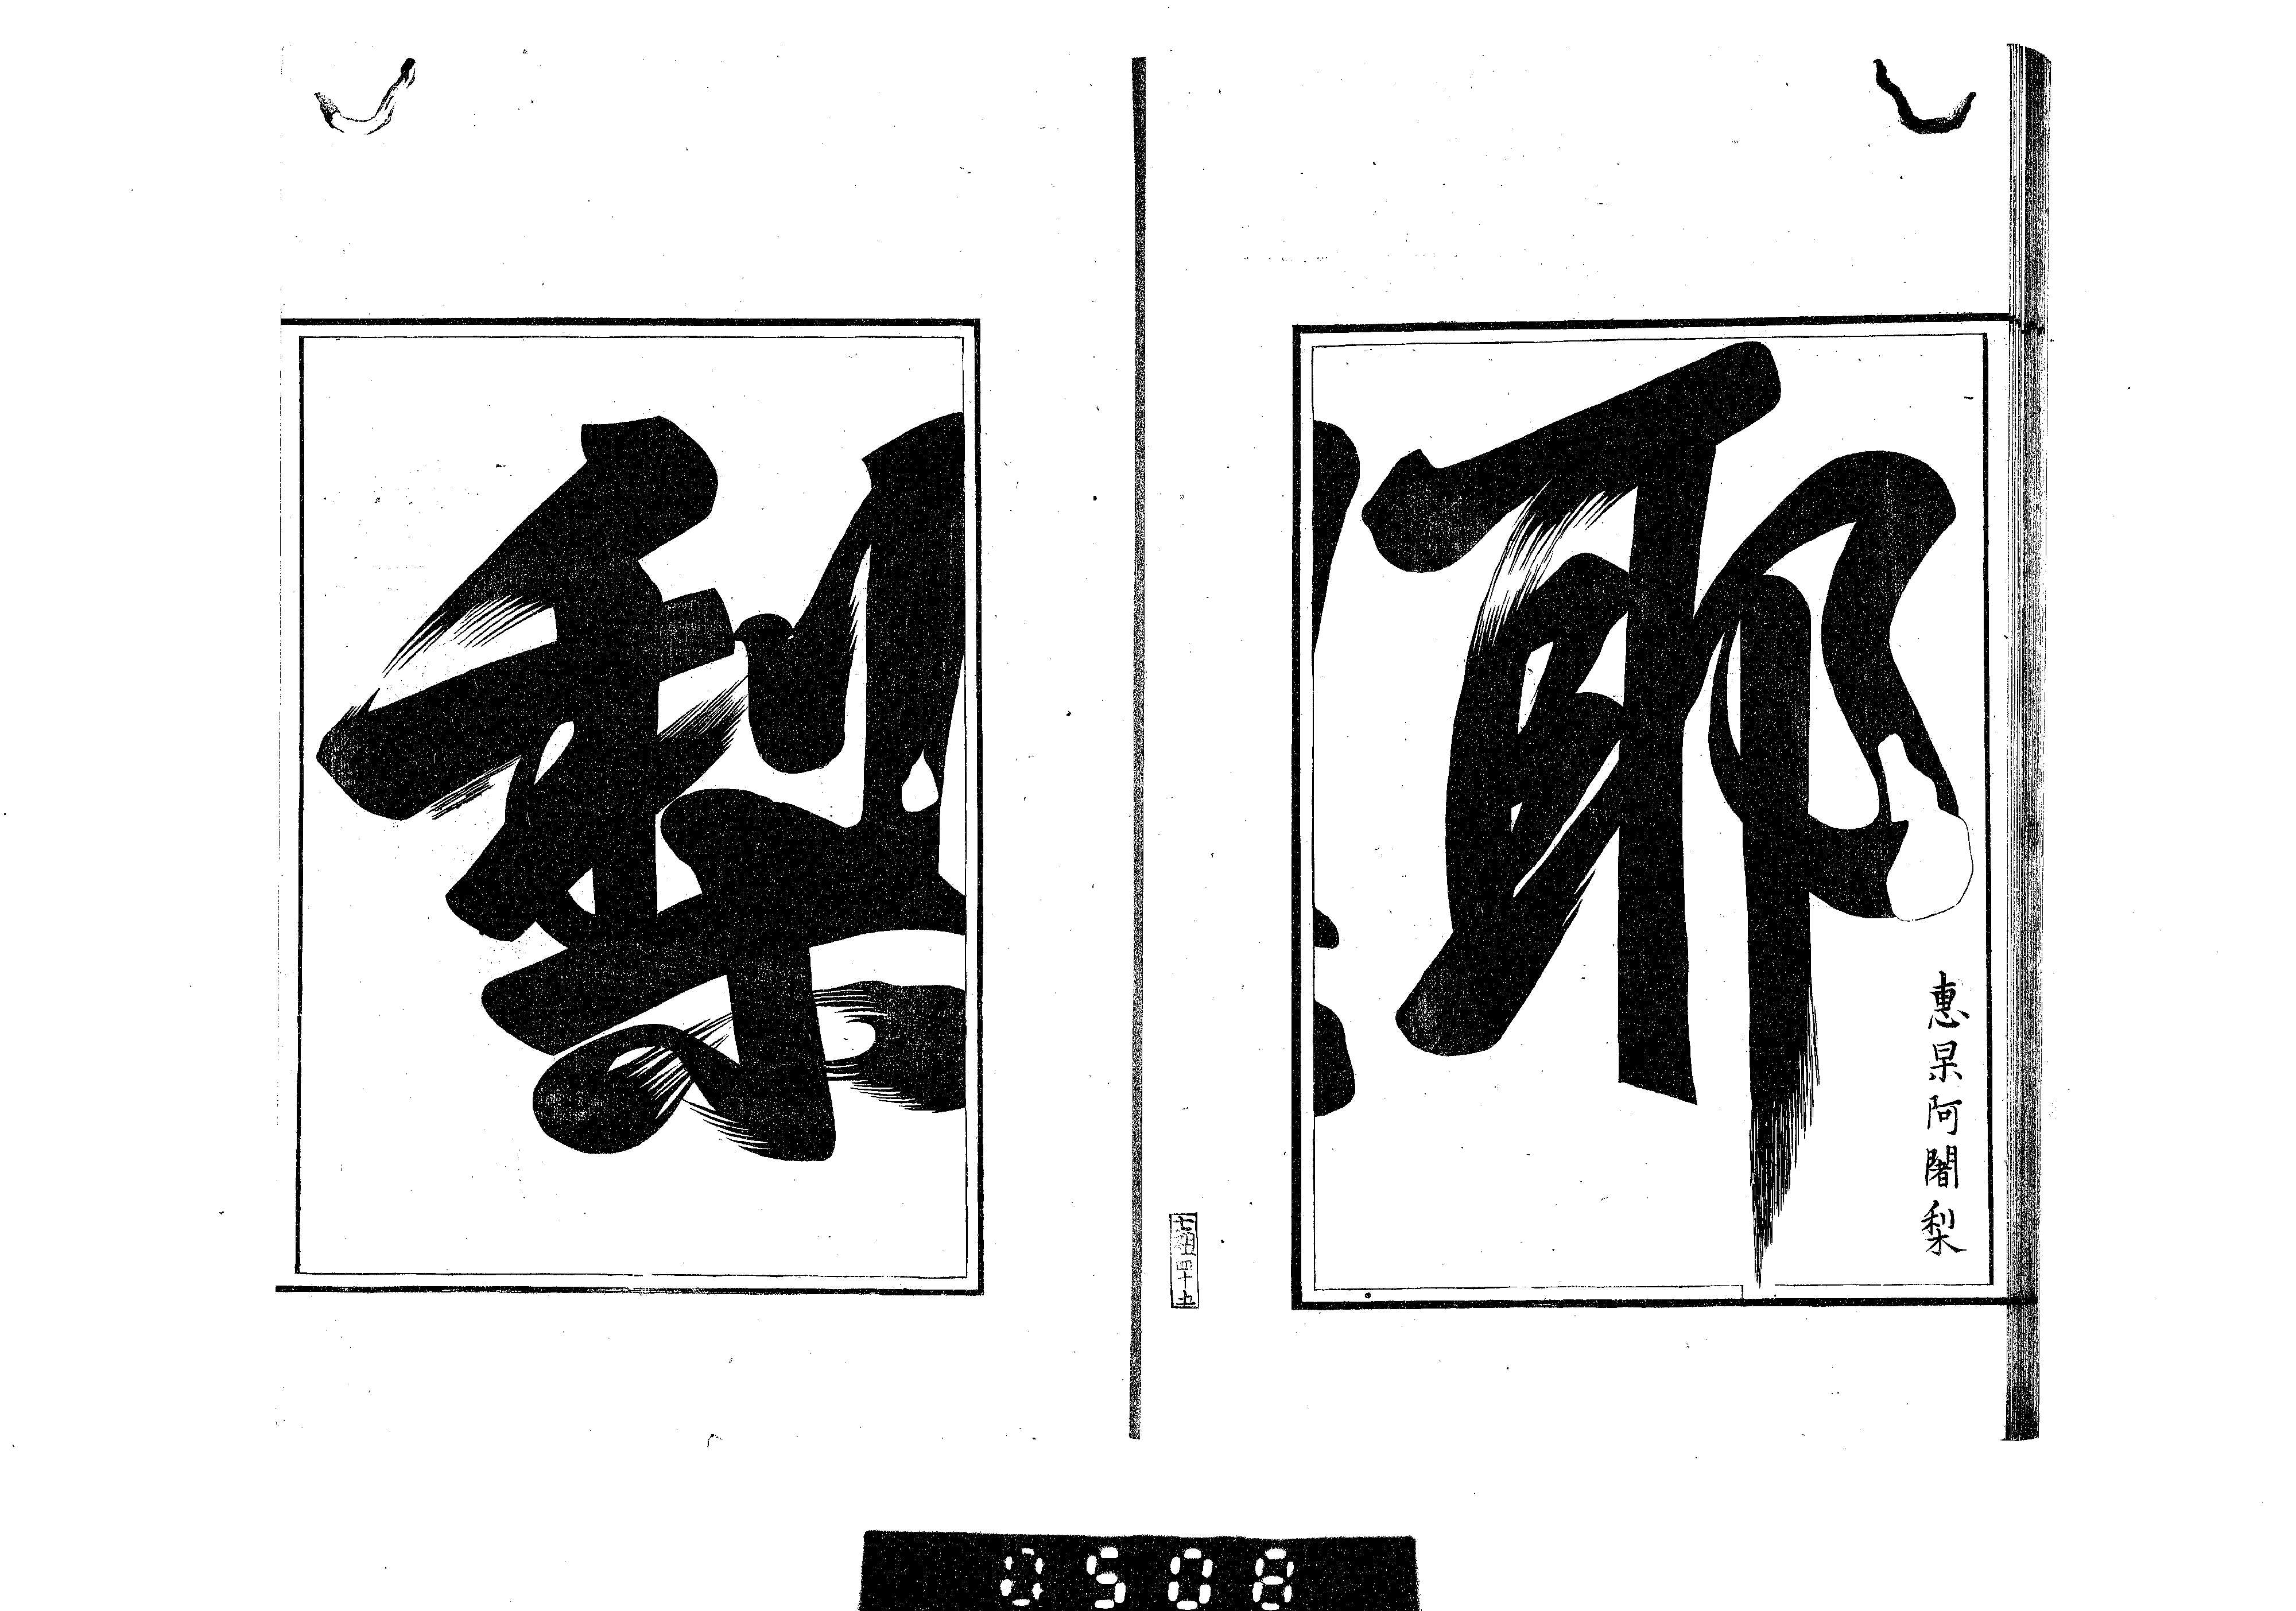 耶
惠杲阿闍梨
梨
七祖四十五
0508